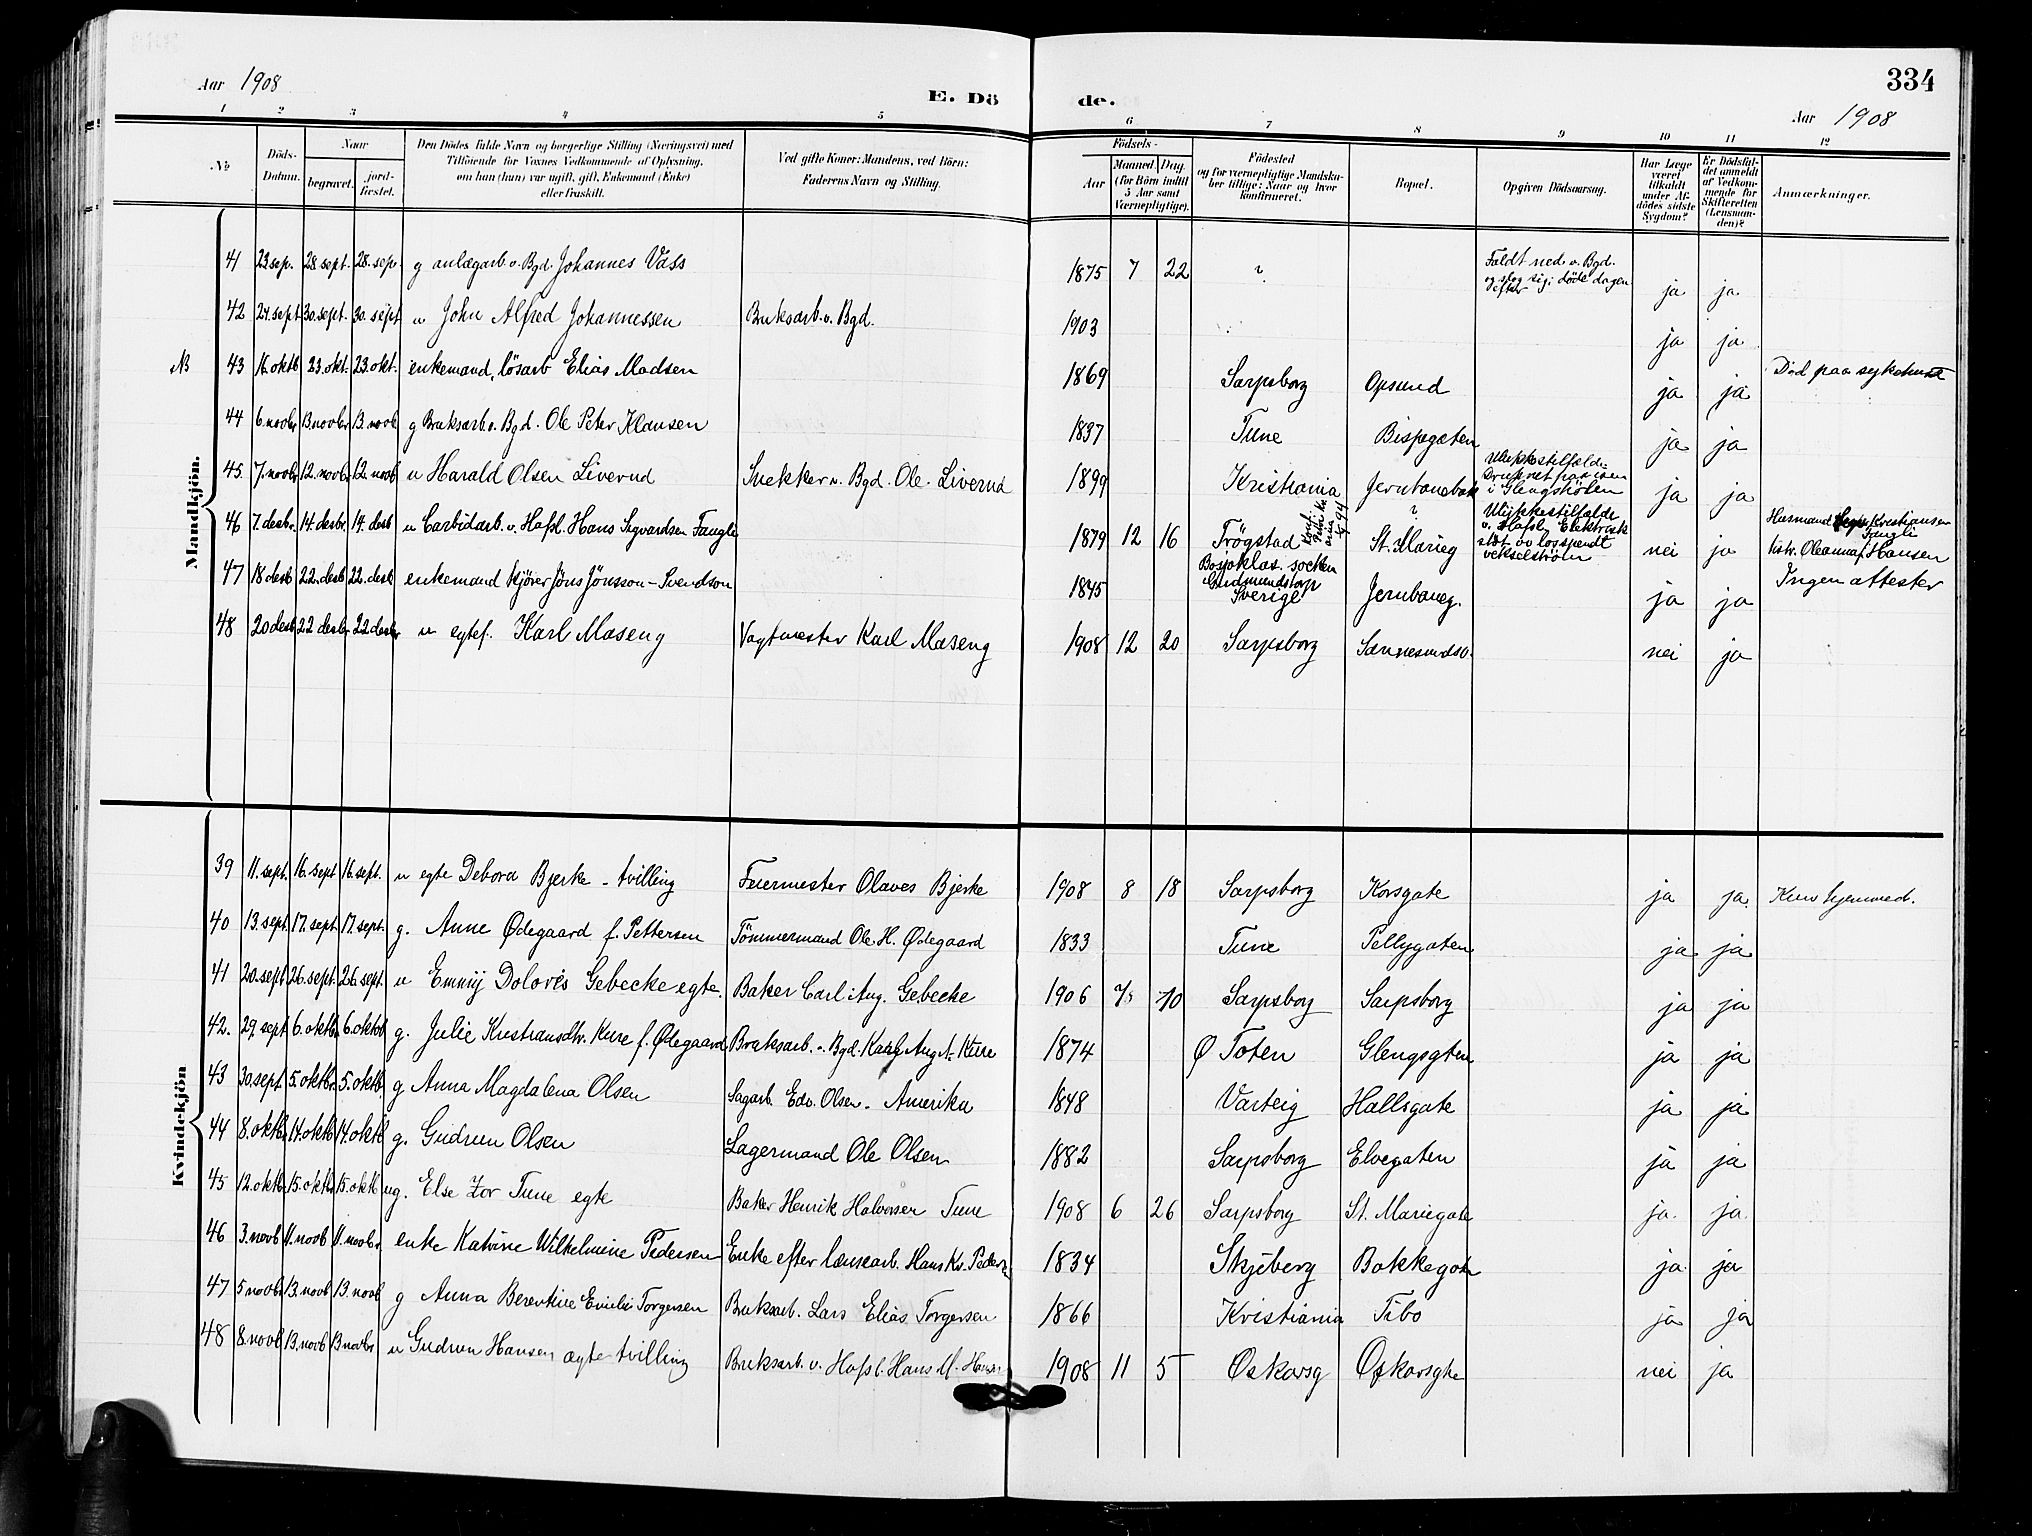 Aar 1908
E. Dö de.
334
Aar 1908
1 2 3 4 5 6 7 8 9 10 11 12
No
Döds-Datum.
Naar
begravet.
jord-fæstet.
Den Dödes fulde Navn og borgerlige Stilling (Næringsvei) med
Tilföiende for Voxnes Vedkommende af Oplysning,
om han (hun) var ugift, gift, Enkemand (Enke)
eller fraskilt.
Ved gifte Koner: Mandens, ved Börn:
Faderens Navn og Stilling.
Födsels-
Aar
Maaned. Dag.
(for Börn indtil
5 Aar samt
Værnepligtige).
Födested
og for værnepligtige Mandska-
ber tillige: Naar og hvor
konfirmeret.
Bopæl.
Opgiven Dödsaarsag.
Har Læge
været
tilkaldt
under Af-
dödes sidste
Sygdom?
Er Dödsfal-
det anmeldt
af Vedkom-
mende for
Skifteretten
(Lensman-
den)?
Anmærkninger.
Mandkjön.
41 23 sep. 28 sept. 28. sep. g anlægarb. v. Bgd. Johannes Vass 1875 7 22 ? Faldt ned v. Bgd. og slog sig; döde dagen efter ja ja
42 24. sept 30. sept. 30. sept u John Alfred Johannessen Bruksarb. v. Bgd. 1903 ja ja
NB 43 16. oktb 23. okt. 23. okt. enkemand, lösarb Elias Madsen 1869 Sarpsborg Opsund ja ja Död paa sykehuset
44 6. novbr 13. novbr 13. novb g Bruksarb. v. Bgd. Ole Peter Klausen 1837 Tune Bispegaten ja ja
45. 7. novbr 12. novbr 12. novb u Harald Olsen Liverud Snekker v. Bgd. Ole Liverud 1899 Kristiania Jernbanebak ? Ulykkestilfælde: Druknet paa isen i Glengshölen ja ja
46 7. desbr. 14. desbr. 14. desb u Carbidarb. v. Hafsl. Hans Sigvardsen Fangli 1879 12 16 Trögstad 1894 St. Marieg Ulykkestilfælde v. Hafsl. Elektrisk stöt av höispendt vekselström nei ja Husmand Kristiansen Fangli Hansen
47 18 desb 22. desbr. 22. desb enkemand kjörer Jöns Jönsson-Svendson 1845 Bosjöklos. socken Gudmundstorp Sverige Jernbaneg. ja ja Ingen attester
48 20 desb 22 desbr 22 desbr u egtef. Karl Maseng Vagtmester Karl Maseng 1908 12 20 Sarpsborg Sannesundsv. nei ja
Kvindekjön
39 11. sept. 16. sept 16. sept. u egte Debora Bjerke - tvilling Fuermester Olaves Bjerke 1908 8 18 Sarpsborg Korsgate ja ja. Kun hjemmed.
40 13. sept 17. sept 17. sept. g. Anne Ødegaard f. Pettersen Tömmermand Ole H. Ødegaard 1833 Tune Pellygaten ja ja
41 20. sept 26. sept. 26. sept. u Emmy Dolorés Gebecke egte. Baker Carl Aug. Gebecke 1906 7 10 Sarpsborg Sarpsborg ja ja
42. 29. sept 6. oktbr 6. oktob g. Julie Kristiansdtr. Kure f. Ødegaard Bruksarb. v. Bgd. Karl Aug. A. Kure 1874 Ø Toten Glengsgten ja ja
43 30. sept. 5. oktbr 5. oktb. g Anna Magdalena Olsen Sagarb. Edv. Olsen. Amerika 1848 Varteig Hallsgate ja ja
44 8. oktbr 14. oktb 14. oktb g. Gudrun Olsen Lagermand Ole Olsen 1882 Sarpsborg Elvegaten ja ja
45 12. oktbr 15. oktb 15. oktb ug. Else Zor Tune egte Baker Henrik Halvorsen Tune 1908 6 26 Sarpsborg St. Mariegate ja. ja.
46 3. novb 11. novb 11. novbr enke Katrine Wilhelmine Pedersen Enke efter lænsearb. Hans Kr. Pedersen 1834 Skjeberg Bakkegate ja ja
47 5 novbr 13. novb 13. novb g Anna Berentine Emilie Torgersen Bruksarb. Lars Elias Torgersen 1866 Kristiania Tibo ja ja
48 8. novb 13. novb 13 novbr u Gudrun Hansen ægte tvilling Bruksarb. v. Hafsl. Hans M. Hansen 1908 11 5 Oskarsg Oskarsgte nei ja